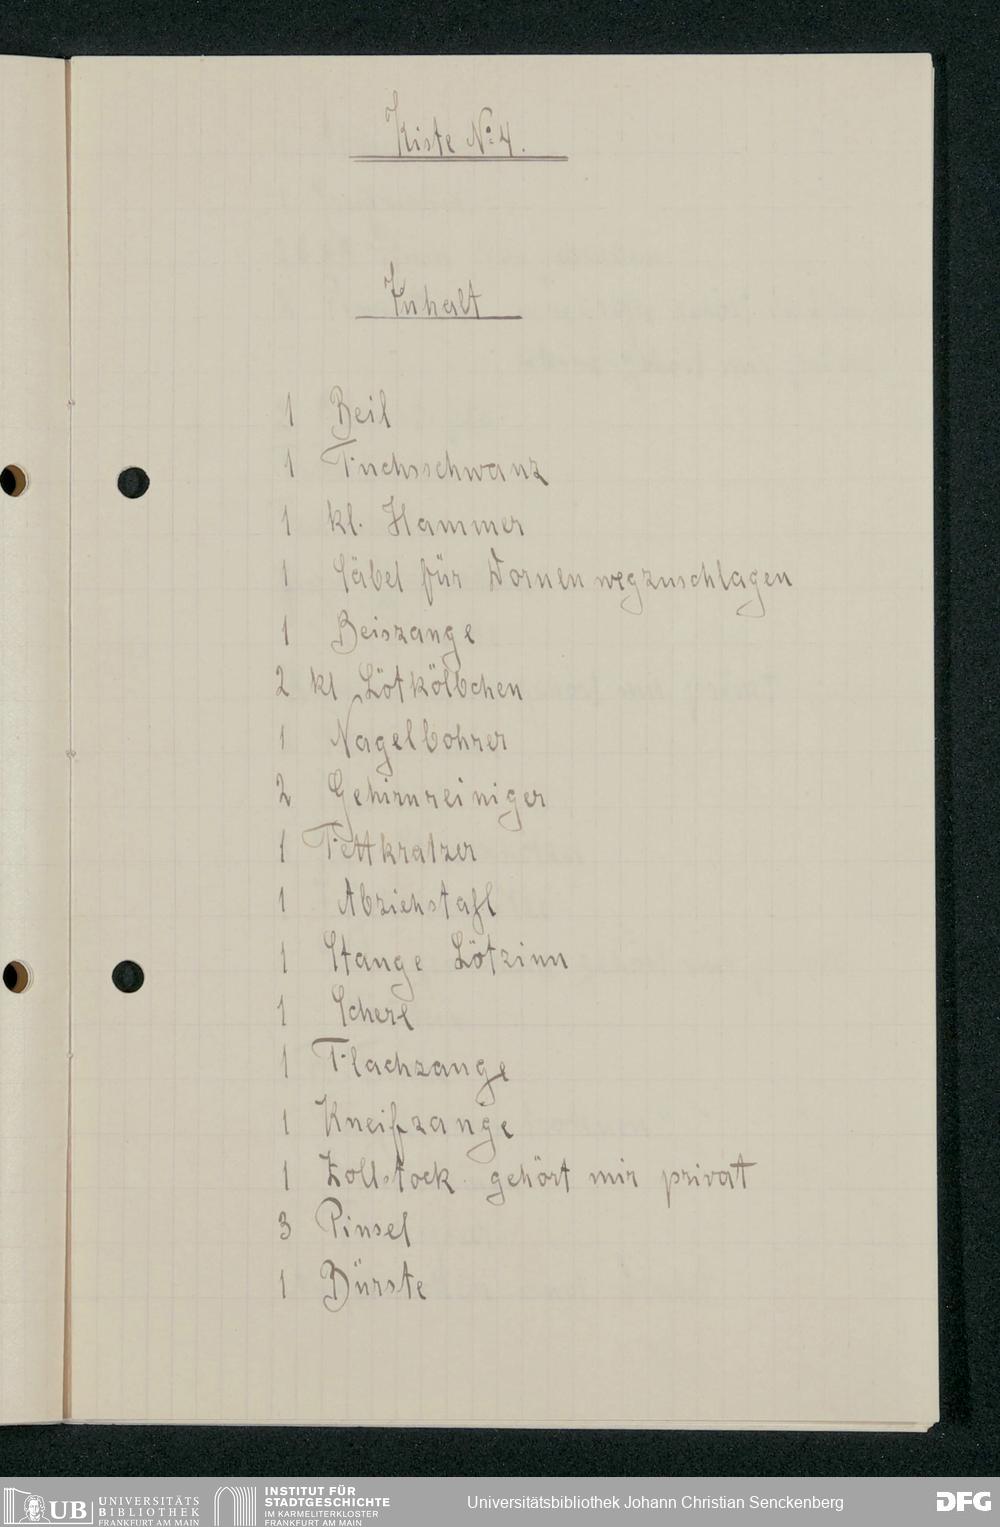 Kiste No 4.
Inhalt
1 Beil
1 Fuchsschwanz
1 kl. Hammer
1 Säbel für Dornen wegzuschlagen
1 Beiszange
2 kl Lötkölbchen
1 Nagelbohrer
2 Gehirnreiniger
1 Fettkratzer
1 Abziehstahl
1 Stange Lötzinn
1 Schere
1 Flachzange
1 Kneifzange
1 Zollstock gehört mir privat
3 Pinsel
1 Bürste
UB UNIVERSITÄTS
BIBLIOTHEK
FRANKFURT AM MAIN
INSTITUT FÜR
STADTGESCHICHTE
IM KARMELITERKLOSTER
FRANKFURT AM MAIN
Universitätsbibliothek Johann Christian Senckenberg
DFG